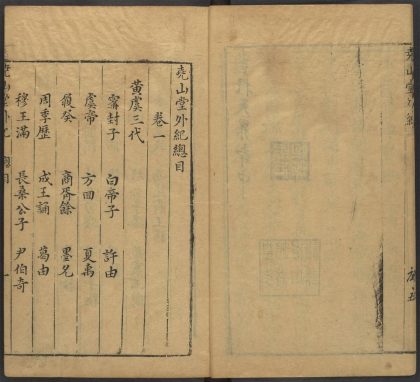 堯山堂外紀
堯山堂外紀總目
卷一
黃虞三代
霱封子 白帝子 許由
虞帝 方回 夏禹
履癸 商胥餘 墨允
周季歷 成王誦 葛由
穆王滿 長桑公子 尹伯奇
堯山堂外紀 總目
一